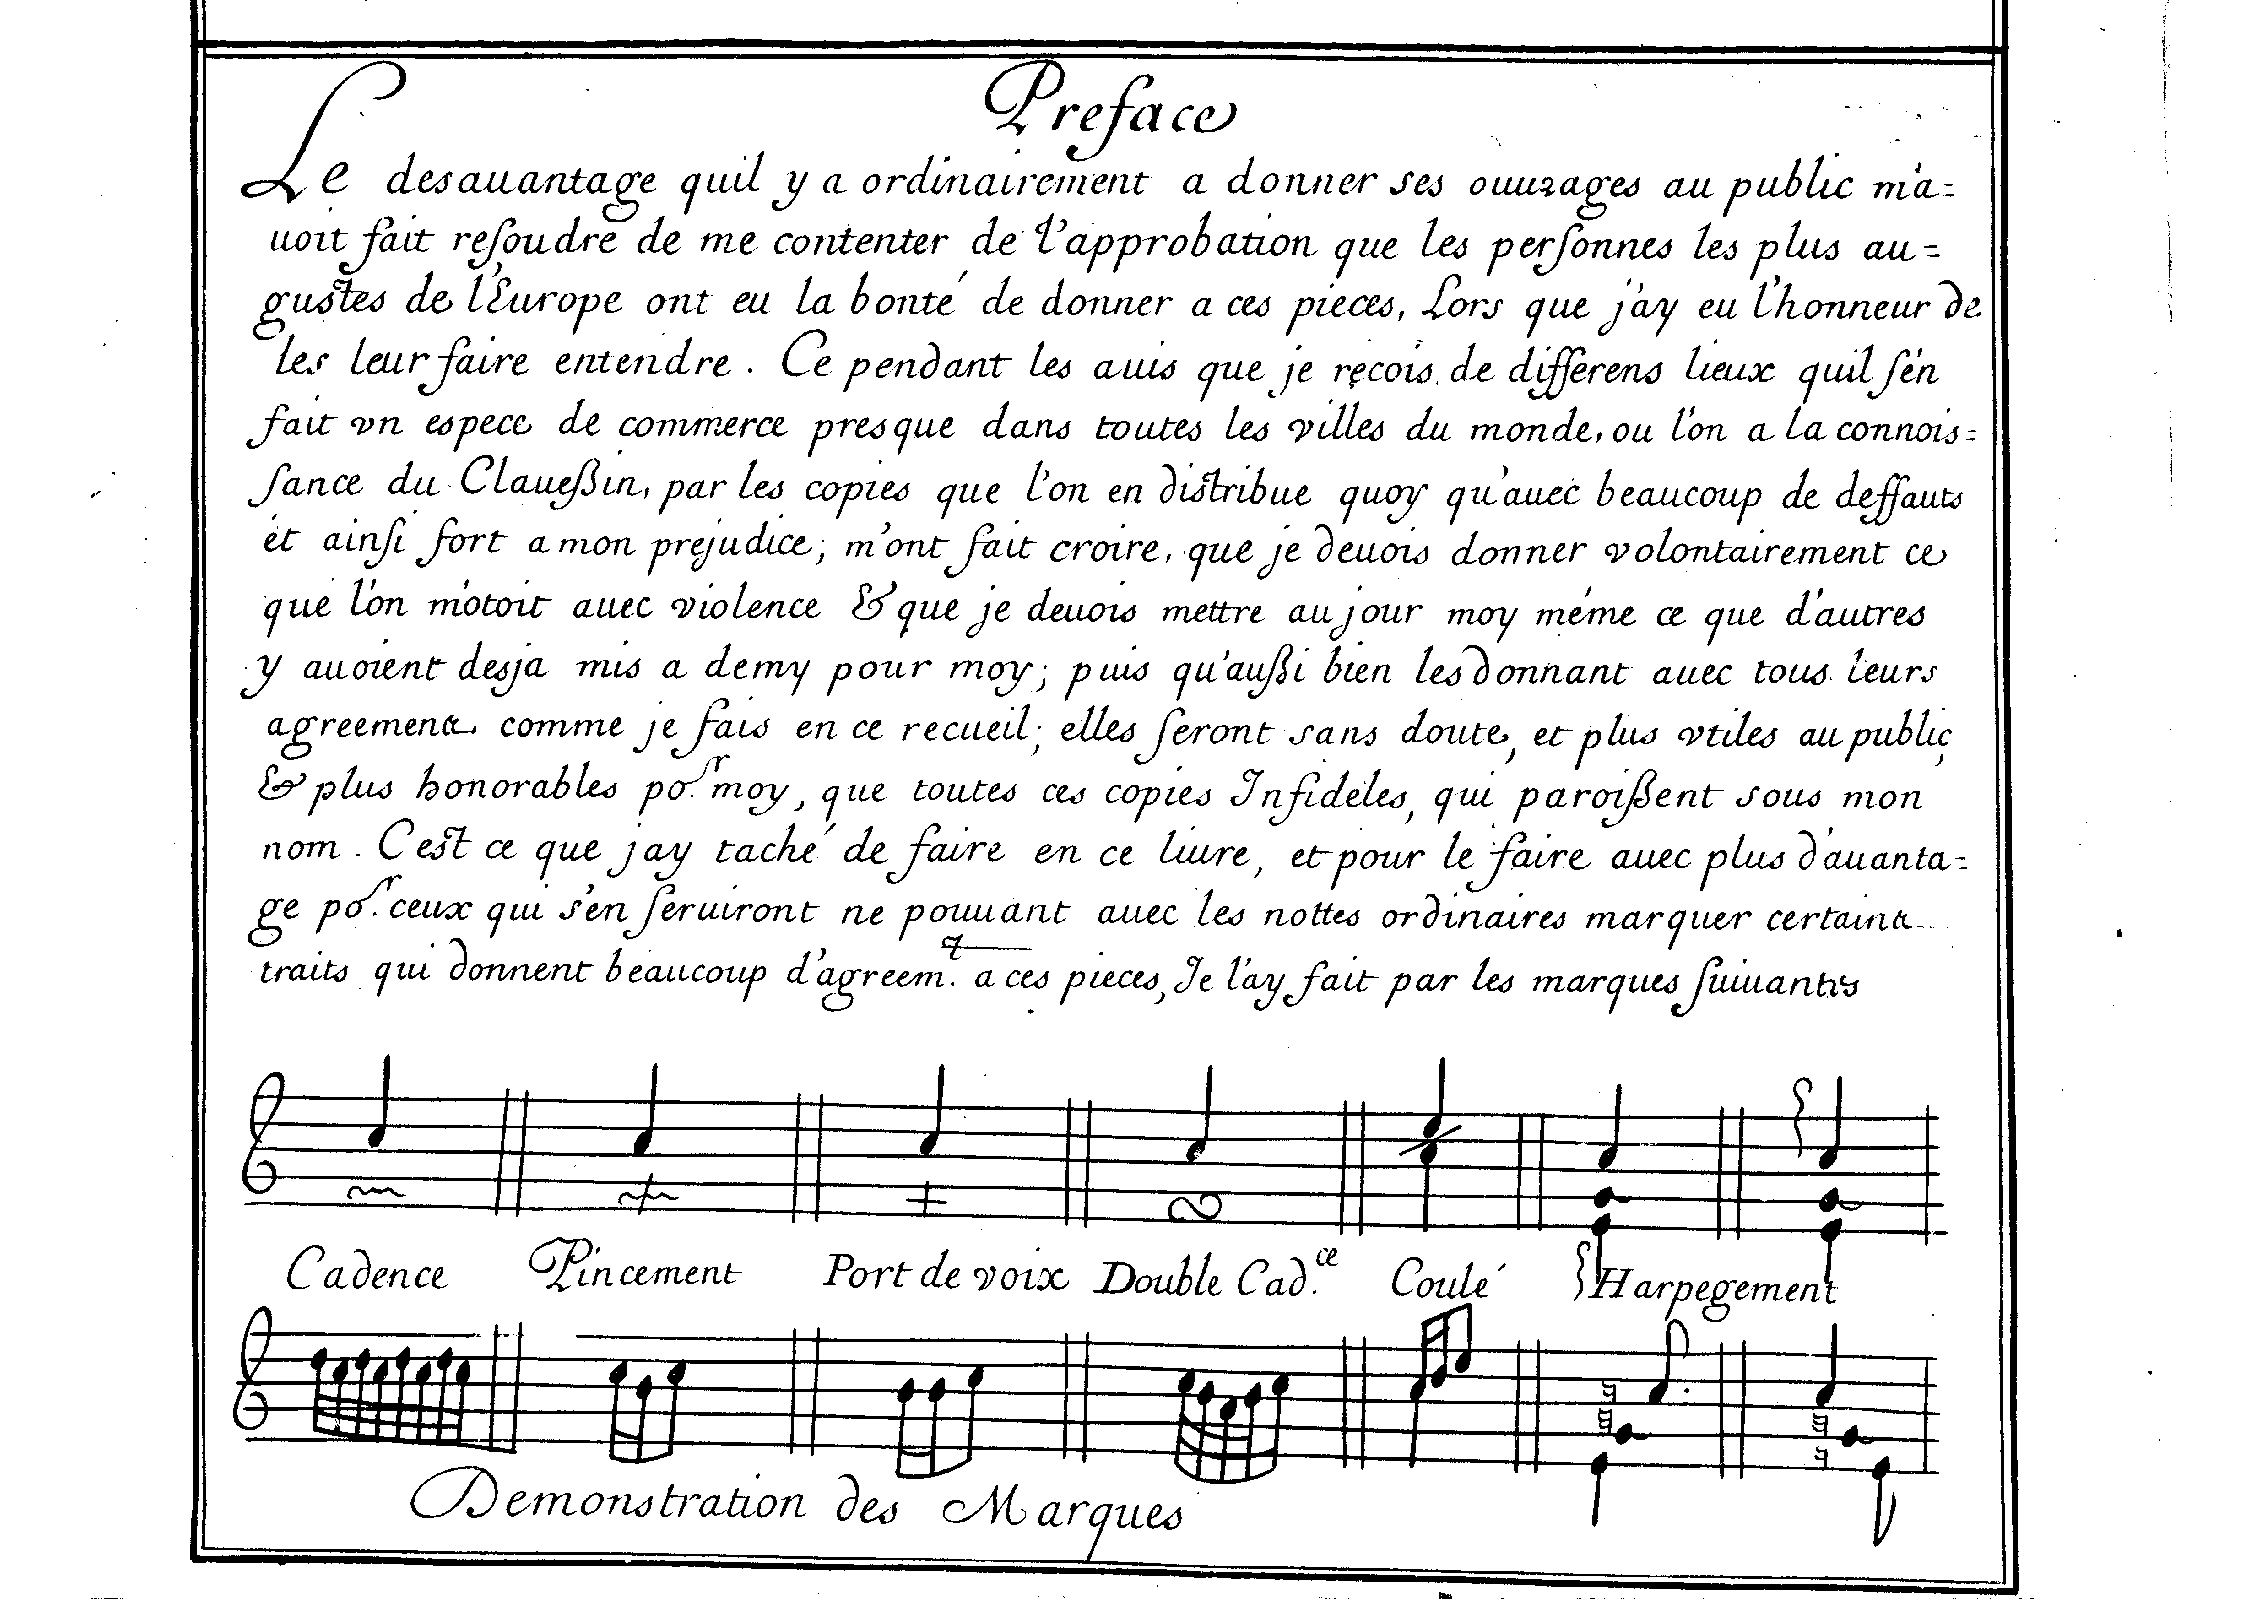 Preface
Le desauantage quil y a ordinairement a donner ses ouurages au public m'a=
uoit fait resoudre de me contenter de l'approbation que les personnes les plus au=
gustes de l'Europe ont eu la bonté de donner a ces pieces, Lors que j'ay eu l'honneur de
les leur faire entendre. Ce pendant les auis que je reçois de differens lieux quil s'en
fait vn espece de commerce presque dans toutes les villes du monde, ou l'on a la connois=
sance du Clauessin, par les copies que l'on en distribue quoy qu'auec beaucoup de deffauts
et ainsi fort a mon prejudice; m'ont fait croire, que je deuois donner volontairement ce
que l'on m'otoit auec violence & que je deuois mettre au jour moy méme ce que d'autres
y auoient desja mis a demy pour moy; puis qu'aussi bien les donnant auec tous leurs
agreemens comme je fais en ce recueil; elles seront sans doute, et plus vtiles au public,
& plus honorables po.r moy, que toutes ces copies Infideles, qui paroissent sous mon
nom. C'est ce que jay taché de faire en ce liure, et pour le faire auec plus d'auanta=
ge po.r ceux qui s'en seruiront ne pouuant auec les nottes ordinaires marquer certains
traits qui donnent beaucoup d'agreem.t a ces pieces, Je l'ay fait par les marques suiuantes
Cadence Pincement Port de voix Double Cad.ce Coulé Harpegement
Demonstration des Marques